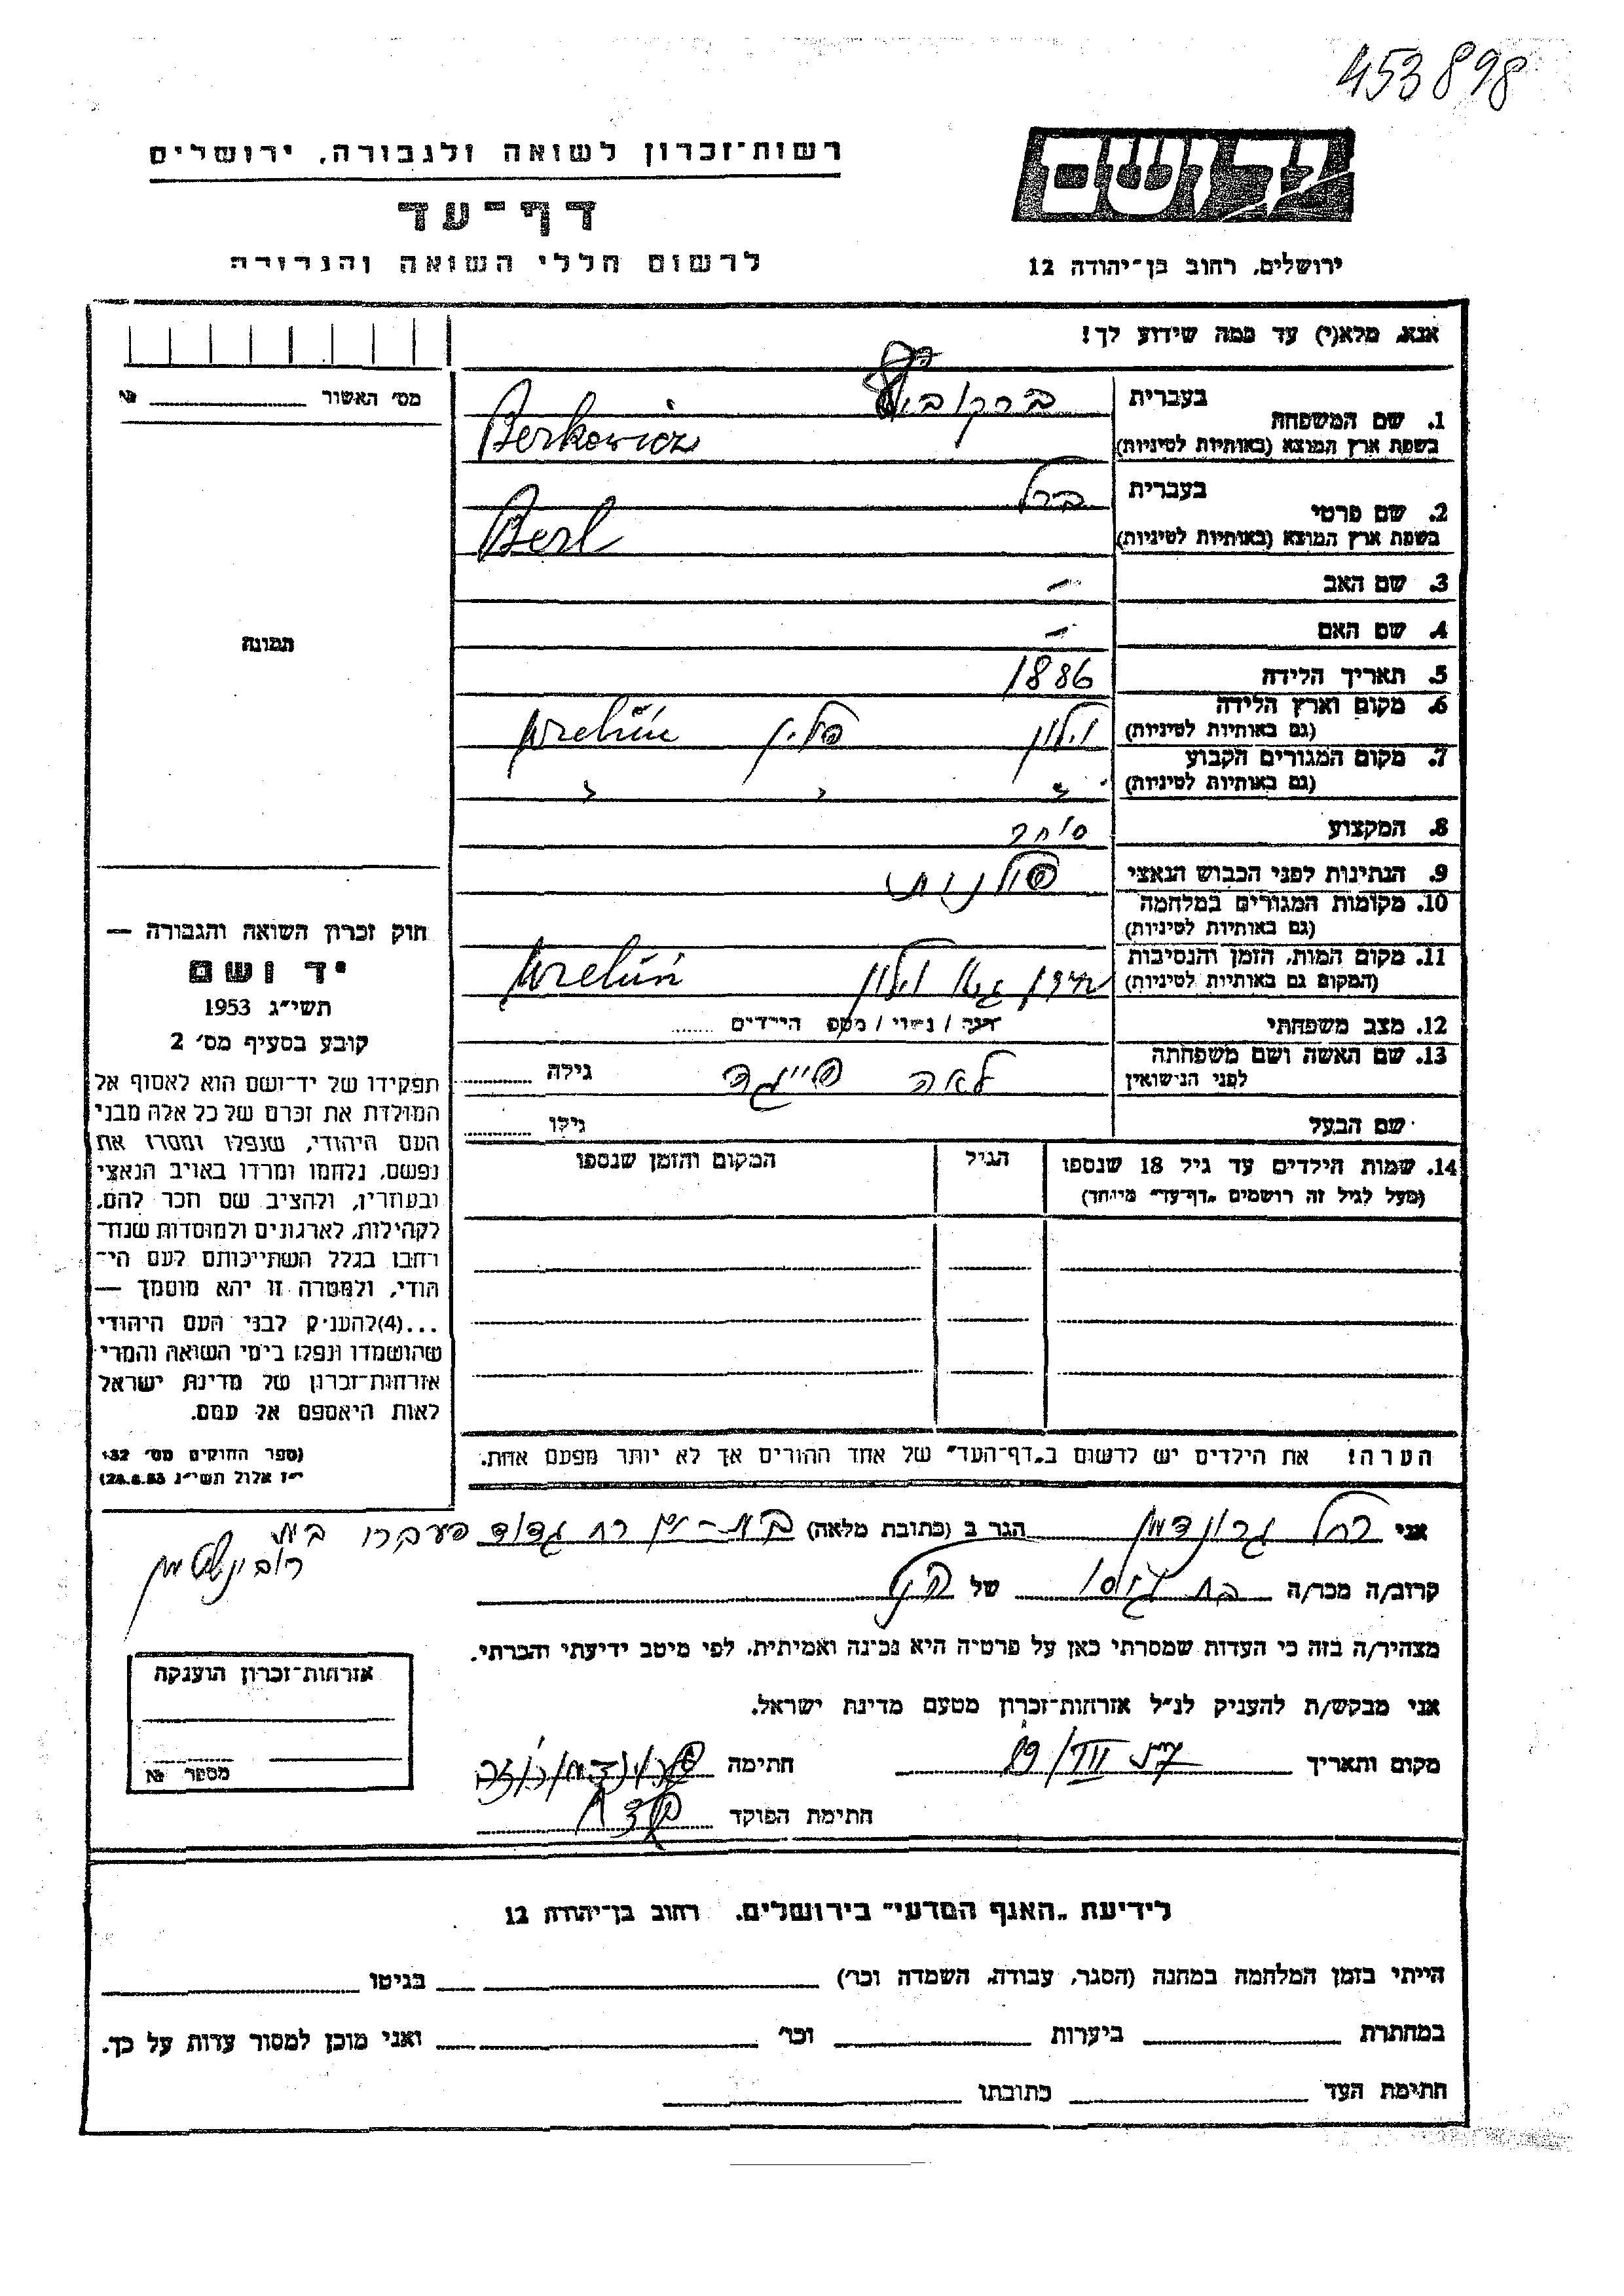 453898
רשות־זכרון לשואה ולגבורה, ירושלים
יד ושם
דף־עד
לרשום חללי השואה והגבורה
ירושלים, רחוב בן־יהודה 12
אנא, מלא(י) עד כמה שידוע לך!
מס׳ האשור №
1. שם המשפחה
בעברית ברקוביץ
בשפת ארץ המוצא (באותיות לטיניות) Berkowicz
2. שם פרטי
בעברית ברל
בשפת ארץ המוצא (באותיות לטיניות) Berl
3. שם האב –
4. שם האם –
תמונה
5. תאריך הלידה 1886
6. מקום וארץ הלידה (גם באותיות לטיניות) וילון פולין Wieluń
7. מקום המגורים הקבוע (גם באותיות לטיניות) " " "
8. המקצוע סוחר
9. הנתינות לפני הכבוש הנאצי פולנית
10. מקומות המגורים במלחמה (גם באותיות לטיניות)
11. מקום המות, הזמן והנסיבות (המקום גם באותיות לטיניות) וילון Wieluń
12. מצב משפחתי רוק / נשוי / מספ הילדים
13. שם האשה ושם משפחתה לפני הנישואין לאה גילה
שם הבעל גילו
14. שמות הילדים עד גיל 18 שנספו (מעל לגיל זה רושמים „דף־עד״ מיוחד)
הגיל
המקום והזמן שנספו
הערה! את הילדים יש לרשום ב„דף־העד״ של אחד ההורים אך לא יותר מפעם אחת.
חוק זכרון השואה והגבורה —
יד ושם
תשי״ג 1953
קובע בסעיף מס׳ 2
תפקידו של יד־ושם הוא לאסוף אל
המולדת את זכרם של כל אלה מבני
העם היהודי, שנפלו ומסרו את
נפשם, נלחמו ומרדו באויב הנאצי
ובעוזריו, ולהציב שם וזכר להם,
לקהילות, לארגונים ולמוסדות שנח־
רבו בגלל השתייכותם לעם הי־
הודי, ולמטרה זו יהא מוסמך —
...(4)להעניק לבני העם היהודי
שהושמדו ונפלו בימי השואה והמרי
אזרחות־זכרון של מדינת ישראל
לאות היאספם אל עמם.
(ספר החוקים מס׳ 132
י״ז אלול תשי״ג 28.8.53)
אני רחל גרונדמן הגר ב (כתובת מלאה) בת-ים רח גדוד
קרוב/ה מכר/ה של הנ״ל
מצהיר/ה בזה כי העדות שמסרתי כאן על פרטיה היא נכונה ואמיתית, לפי מיטב ידיעתי והכרתי.
אני מבקש/ת להעניק לנ״ל אזרחות־זכרון מטעם מדינת ישראל.
מקום ותאריך חתימה
חתימת הפוקד
אזרחות־זכרון הוענקה
מספר №
לידיעת „האגף המדעי״ בירושלים, רחוב בן־יהודה 12
הייתי בזמן המלחמה במחנה (הסגר, עבודה, השמדה וכו׳) בגיטו
במחתרת ביערות וכו׳ ואני מוכן למסור עדות על כך.
חתימת העד כתובתו